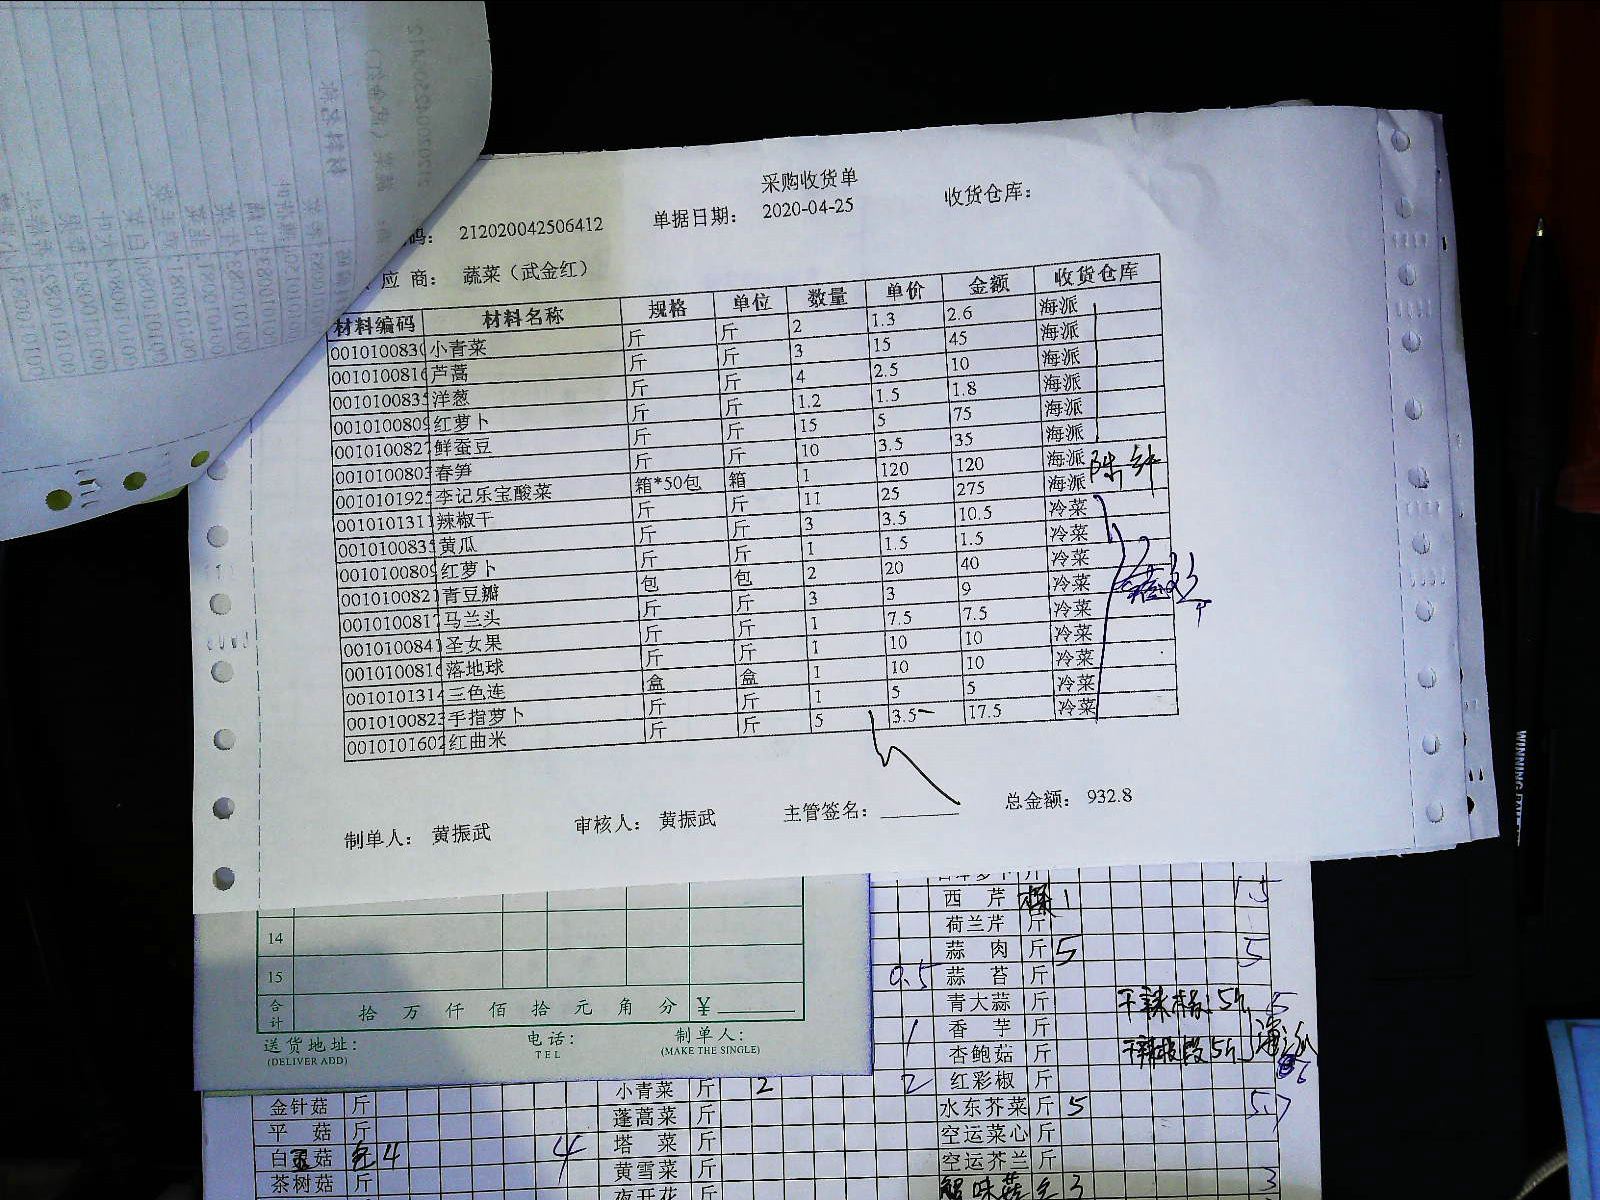 采购收货单
码： 212020042506412 单据日期： 2020-04-25 收货仓库：
应 商： 蔬菜（武金红）
材料编码 材料名称 规格 单位 数量 单价 金额 收货仓库
0010100830 小青菜 斤 斤 2 1.3 2.6 海派
0010100816 芦蒿 斤 斤 3 15 45 海派
0010100835 洋葱 斤 斤 4 2.5 10 海派
0010100809 红萝卜 斤 斤 1.2 1.5 1.8 海派
0010100827 鲜蚕豆 斤 斤 15 5 75 海派
0010100803 春笋 斤 斤 10 3.5 35 海派
0010101925 李记乐宝酸菜 箱*50包 箱 1 120 120 海派
0010101311 辣椒干 斤 斤 11 25 275 海派
0010100835 黄瓜 斤 斤 3 3.5 10.5 冷菜
0010100809 红萝卜 斤 斤 1 1.5 1.5 冷菜
0010100821 青豆瓣 包 包 2 20 40 冷菜
0010100817 马兰头 斤 斤 3 3 9 冷菜
0010100841 圣女果 斤 斤 1 7.5 7.5 冷菜
0010100816 落地球 斤 斤 1 10 10 冷菜
0010101314 三色连 盒 盒 1 10 10 冷菜
0010100823 手指萝卜 斤 斤 1 5 5 冷菜
0010101602 红曲米 斤 斤 5 3.5 17.5 冷菜
制单人： 黄振武 审核人： 黄振武 主管签名： 总金额： 932.8
14
15
合计 拾 万 仟 佰 拾 元 角 分 ¥
送货地址：
(DELIVER ADD)
电话：
TEL
制单人：
(MAKE THE SINGLE)
西 芹 1 1.5
荷兰芹 斤
蒜 肉 斤 5 5
0.5 蒜 苔 斤
青大蒜 斤
1 香 芋 斤
杏鲍菇 斤
2 红彩椒 斤
水东芥菜 斤 5 5.7
空运菜心 斤
空运芥兰 斤
3 3
小青菜 斤 2
蓬蒿菜 斤
4 塔 菜 斤
黄雪菜 斤
夜开花 斤
金针菇 斤
平 菇 斤
白灵菇 包 4
茶树菇 斤
WINNING